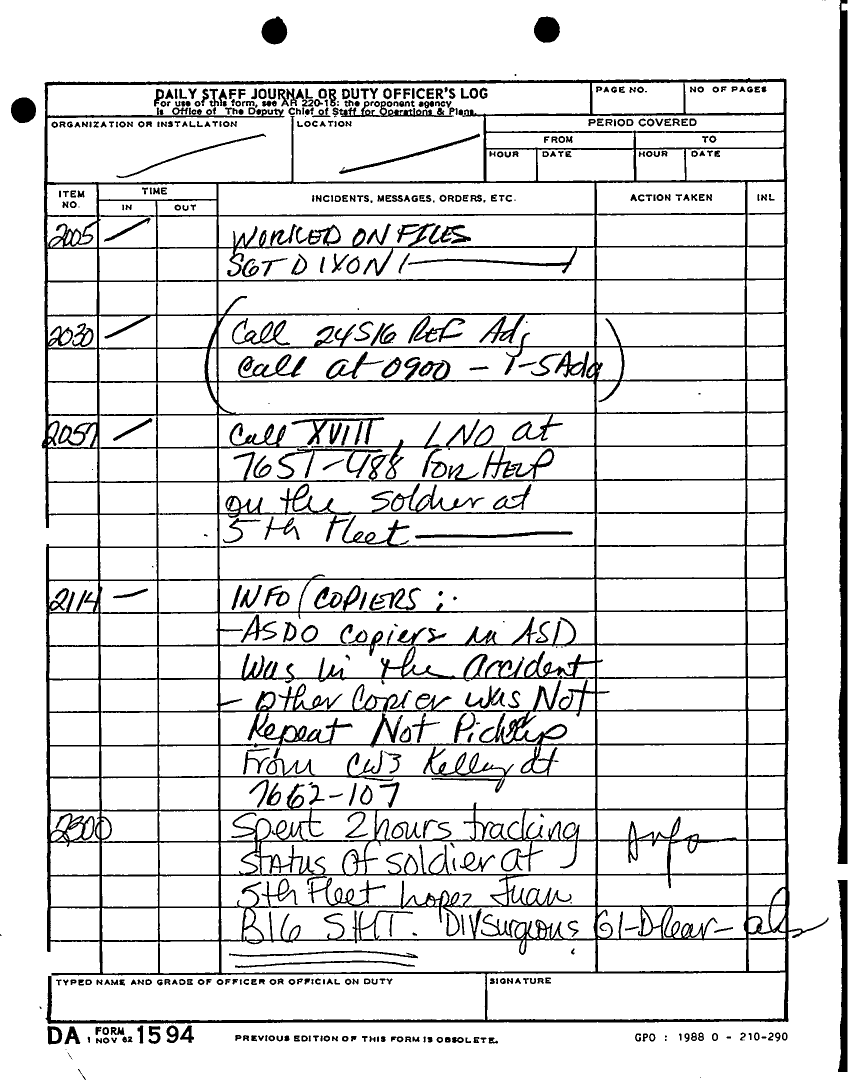 DAILY STAFF JOURNAL OR DUTY OFFICER'S LOG
For use of this form, see AR 220-15; the proponent agency
is Office of The Deputy Chief of Staff for Operations & Plans.
PAGE NO.
NO OF PAGES
ORGANIZATION OR INSTALLATION
LOCATION
PERIOD COVERED
FROM
TO
HOUR
DATE
HOUR
DATE
ITEM NO.
TIME
IN
OUT
INCIDENTS, MESSAGES, ORDERS, ETC.
ACTION TAKEN
INL
2005
WORKED ON FILES
SGT DIXON
2030
Call 24516 REF Adj
Call at 0900 - 1-5 Ada
2057
Call XVIII, LNO at
7651-488 FOR HELP
on the soldier at
5th Fleet
2114
INFO/COPIERS:
- ASDO copiers in ASD
was in the accident
- other copier was Not
Repeat Not Pickup
From CW3 Kelley at
7662-107
2300
Spent 2 hours tracking
Info
STATUS of soldier at
5th Fleet Lopez Juan
BIG SHT. DIVSurgeons G1-D Rear-
TYPED NAME AND GRADE OF OFFICER OR OFFICIAL ON DUTY
SIGNATURE
DA FORM 1 NOV 62 1594
PREVIOUS EDITION OF THIS FORM IS OBSOLETE.
GPO : 1988 O - 210-290